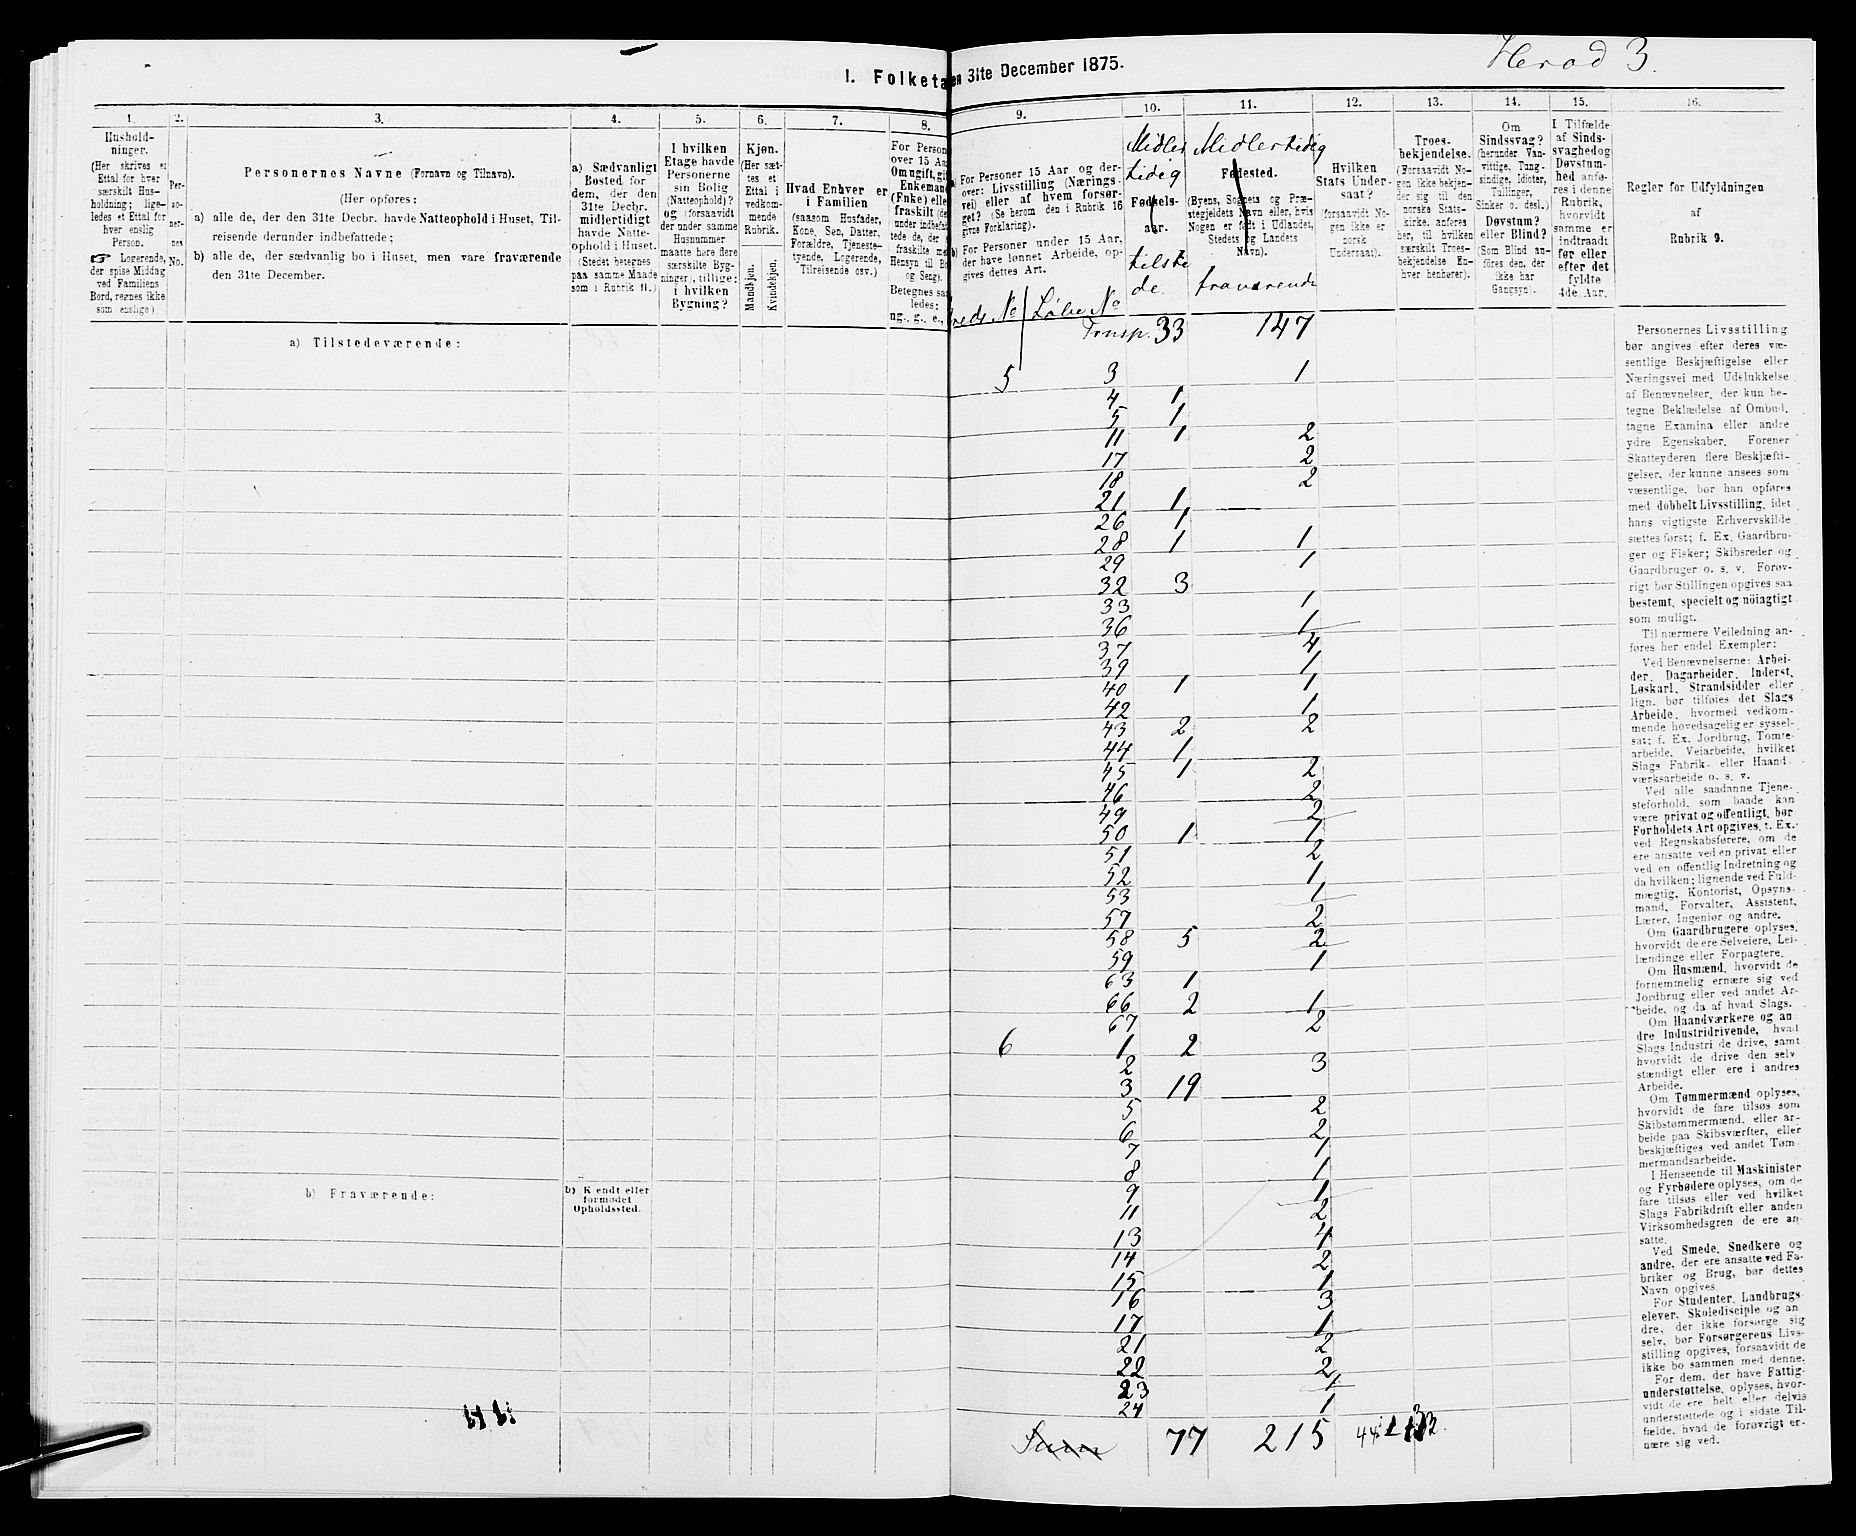 Herad 3.
1. Folketa en 31te December 1875.
1.
Hushold-
ninger.
(Her skrives et
Ettal for hver
særskilt Hus-
holdning; lige-
ledes et Ettal for
hver enslig
Person.
☞ Logerende,
der spise Middag
ved Familiens
Bord, regnes ikke
som enslige).
2.
Per-
so-
ner-
nes
No.
3.
Personernes Navne (Fornavn og Tilnavn).
(Her opføres:
a) alle de, der den 31te Decbr. havde Natteophold i Huset, Til-
reisende derunder indbefattede;
b) alle de, der sædvanlig bo i Huset, men vare fraværende
den 31te December.
4.
a) Sædvanligt
Bosted for
dem, der den
31te Decbr.
midlertidigt
havde Natte-
ophold i Huset.
(Stedet betegnes
paa samme Maade
som i Rubrik 11.)
5.
I hvilken
Etage havde
Personerne
sin Bolig
(Natteophold)?
og (forsaavidt
der under samme
Husnummer
maatte høre flere
særskilte Byg-
ninger), tillige:
i hvilken
Bygning?
6.
Kjøn.
(Her sæt-
tes et
Ettal i
vedkom-
mende
Rubrik.
Mandkjøn.
Kvindekjøn.
7.
Hvad Enhver er
i Familien
(saasom Husfader,
Kone, Søn, Datter,
Forældre, Tjeneste-
tyende, Logerende,
Tilreisende osv.)
8.
For Person
over 15 Aa
Om ugift, gif
Enkemand
(Enke) elle
fraskilt (de
under indbefat
tede de, der
fraskilte me
Hensyn til Bo
og Seng).
Betegnes saa
ledes:
ug., g., e.,
9.
a) For Personer 15 Aar og der-
over: Livsstilling (Nærings-
vei) eller af hvem forsør-
get? (Se herom den i Rubrik 16
givne Forklaring).
b) For Personer under 15 Aar,
der have lønnet Arbeide, op-
gives dettes Art.
reds No Løbe No
10.
Midler
tidig
Fødsels-
aar.
tilste
de.
11.
Midlertidig
Fødested.
(Byens, Sognets og Præ-
stegjeldets Navn eller, hvis
Nogen er født i Udlandet,
Stedets og Landets
Navn).
fraværende
12.
Hvilken
Stats Under-
saat?
(forsaavidt No-
gen ikke er
norsk
Undersaat).
13.
Troes-
bekjendelse.
(Forsaavidt No-
gen ikke bekjen-
der sig til den
norske Stats-
kirke, anføres
her, til hvilken
særskilt Troes-
bekjendelse En-
hver henhører).
14.
Om
Sindssvag?
(herunder Van-
vittige, Tung-
sindige, Idioter,
Tullinger,
Sinker o. desl.)
Døvstum?
eller Blind?
(Som Blind an-
føres den, der
ikke har
Gangsyn).
15.
I Tilfælde
af Sinds-
svaghed og
Døvstum-
hed anfø-
res i denne
Rubrik,
hvorvidt
samme er
indtraadt
før eller
efter det
fyldte
4de Aar.
16.
Regler for Udfyldningen
af
Rubrik 9.
a) Tilstedeværende:
Trnsp. 33 147
5 3 1
4 1
5 1
11 1 2
17 2
18 2
21 1
26 1
28 1 1
29 1
32 3
33 1
36 1
37 4
39 1
40 1 1
42 1
43 2 2
44 1
45 1 2
46 2
49 2
50 1 1
51 2
52 1
53 1
57 2
58 5 2
59 1
63 1
66 2 1
67 2
6 1 2
2 3
3 19
5 2
6 2
7 1
8 1
9 1
11 2
13 4
14 2
15 1
16 3
17 1
21 2
22 2
23 1
24 1
Sum 77 215
b) Fraværende:
b) K endt eller
formodet
Opholdssted.
Personernes Livsstilling
bør angives efter deres væ-
sentlige Beskjæftigelse eller
Næringsvei med Udelukkelse
af Benævnelser, der kun be-
tegne Beklædelse af Ombud,
tagne Examina eller andre
ydre Egenskaber. Forener
Skatteyderen flere Beskjæfti-
gelser, der kunne ansees som
væsentlige, bør han opføres
med dobbelt Livsstilling, idet
hans vigtigste Erhvervskilde
sættes først; f. Ex. Gaardbru-
ger og Fisker; Skibsreder og
Gaardbruger o. s. v. Forøv-
rigt bør Stillingen opgives saa
bestemt, specielt og nöiagtigt
som muligt.
Til nærmere Veiledning an-
føres her endel Exempler:
Ved Benævnelserne: Arbei-
der, Dagarbeider, Inderst,
Løskarl, Strandsidder eller
lign. bør tilføies det Slags
Arbeide, hvormed vedkom-
mende hovedsagelig er syssel-
sat; f. Ex. Jordbrug, Tomte-
arbeide, Veiarbeide, hvilket
Slags Fabrik- eller Haand
værksarbeide o. s. v.
Ved alle saadanne Tjene-
steforhold, som baade kan
være privat og offentligt, bør
Forholdets Art opgives, t. Ex.
ved Regnskabsførere, om de
ere ansatte ved en privat eller
ved en offentlig Indretning og
da hvilken; lignende ved Fuld-
mægtig, Kontorist, Opsyns-
mand, Forvalter, Assistent,
Lærer, Ingeniør og andre.
Om Gaardbrugere oplyses,
hvorvidt de ere Selveiere, Lei-
lændinge eller Forpagtere.
Om Husmænd, hvorvidt de
fornemmelig ernære sig ved
Jordbrug eller ved andet Ar-
beide, og da af hvad Slags.
Om Haandværkere og an
dre Industridrivende, hvad
Slags Industri de drive, samt
hvorvidt de drive den selv
stændigt eller ere i andres
Arbeide.
Om Tømmermænd oplyses,
hvorvidt de fare tilsøs som
Skibstømmermænd, eller ar-
beide paa Skibsværfter, eller
beskjæftiges ved andet Tøm
mermandsarbeide.
I Henseende til Maskinister
og Fyrbødere oplyses, om de
fare tilsøs eller ved hvilket
Slags Fabrikdrift eller anden
Virksomhedsgren de ere an-
satte.
Ved Smede, Snedkere og
andre, der ere ansatte ved Fa-
briker og Brug, bør dettes
Navn opgives.
For Studenter, Landbrugs
elever, Skoledisciple og an
dre, der ikke forsørge sig
selv, bør Forsørgerens Livs-
stilling opgives, forsaavidt de
ikke bo sammen med denne.
For dem, der have Fattig-
understøttelse, oplyses, hvor-
vidt de ere helt eller delvis
understøttede og i sidste Til-
fælde, hvad de forøvrigt er-
nære sig ved.